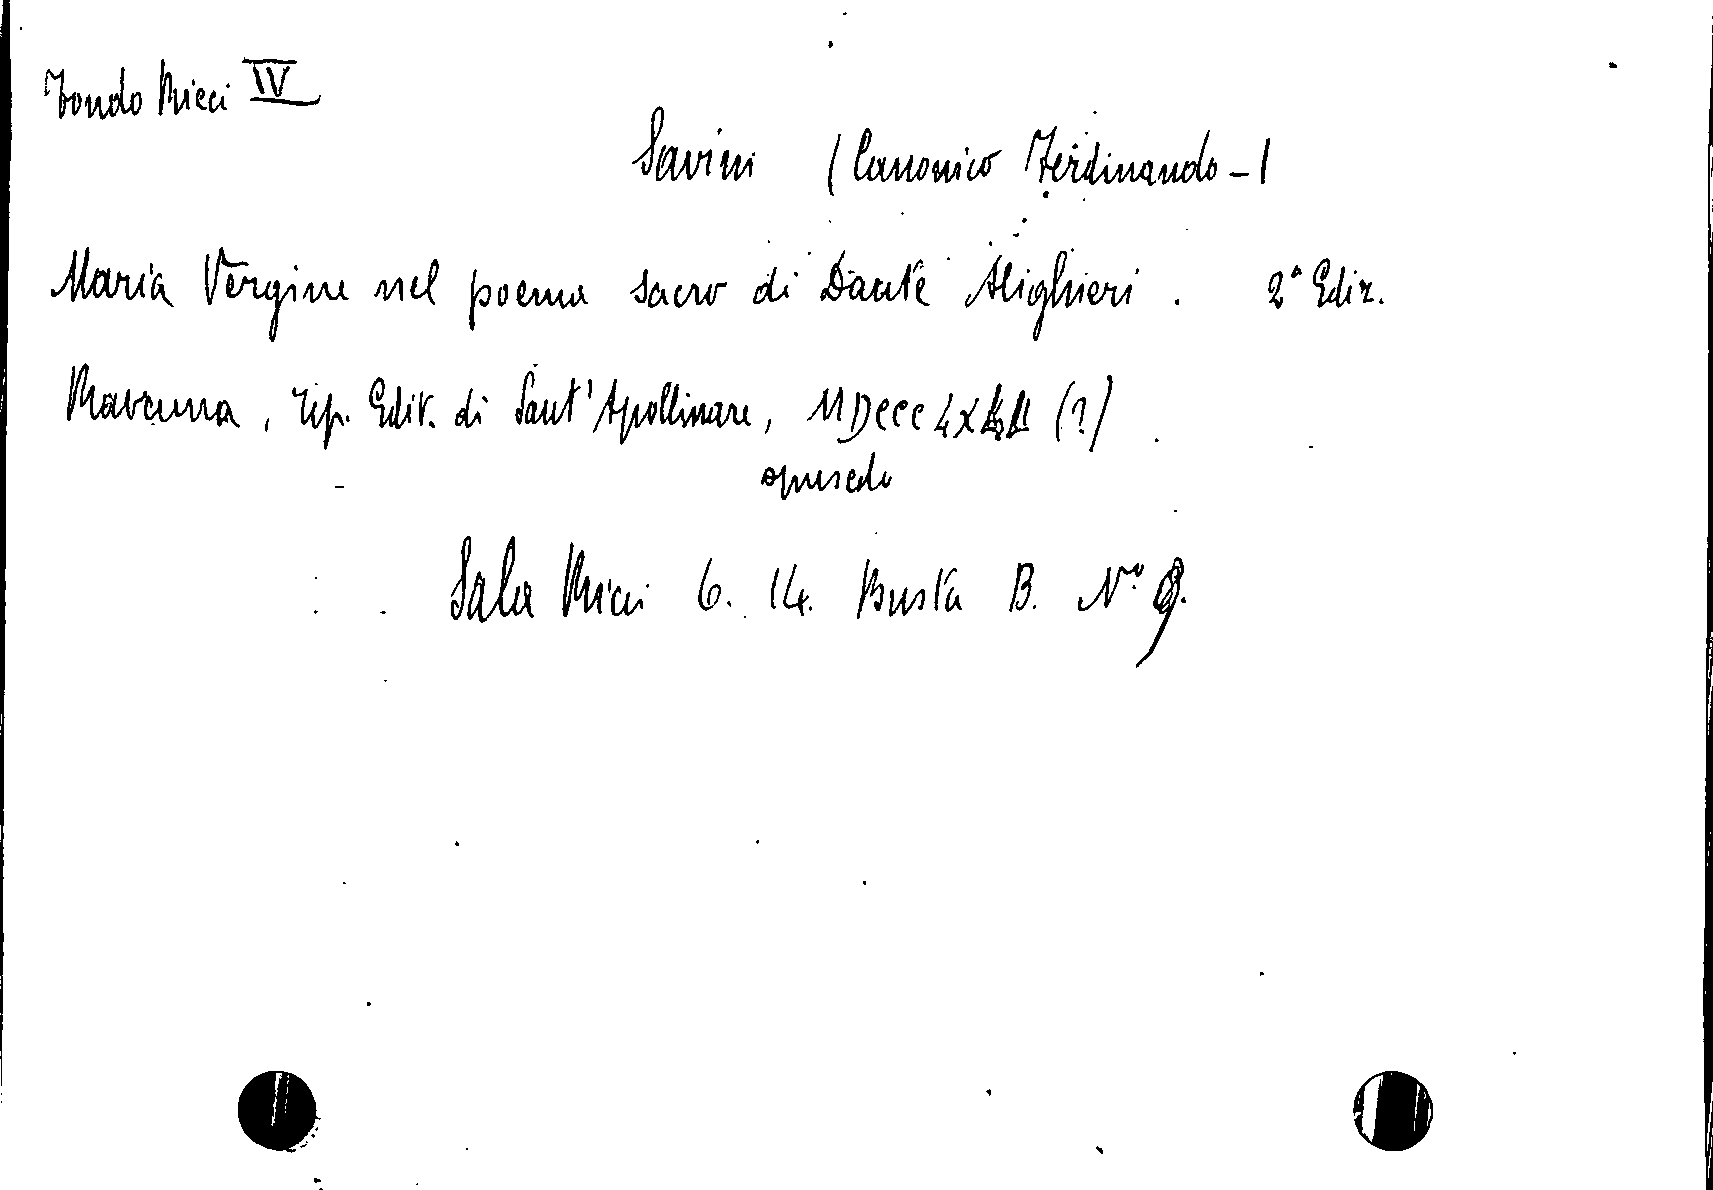 Fondo Ricci IV
Savini (Canonico Ferdinando-)
Maria Vergine nel poema sacro di Dante Alighieri. 2ª Ediz.
Ravenna, Tip. Edit. di Sant'Apollinare, (?)
opuscolo
Sala Ricci 6. 14. Busta B. Nº 9.